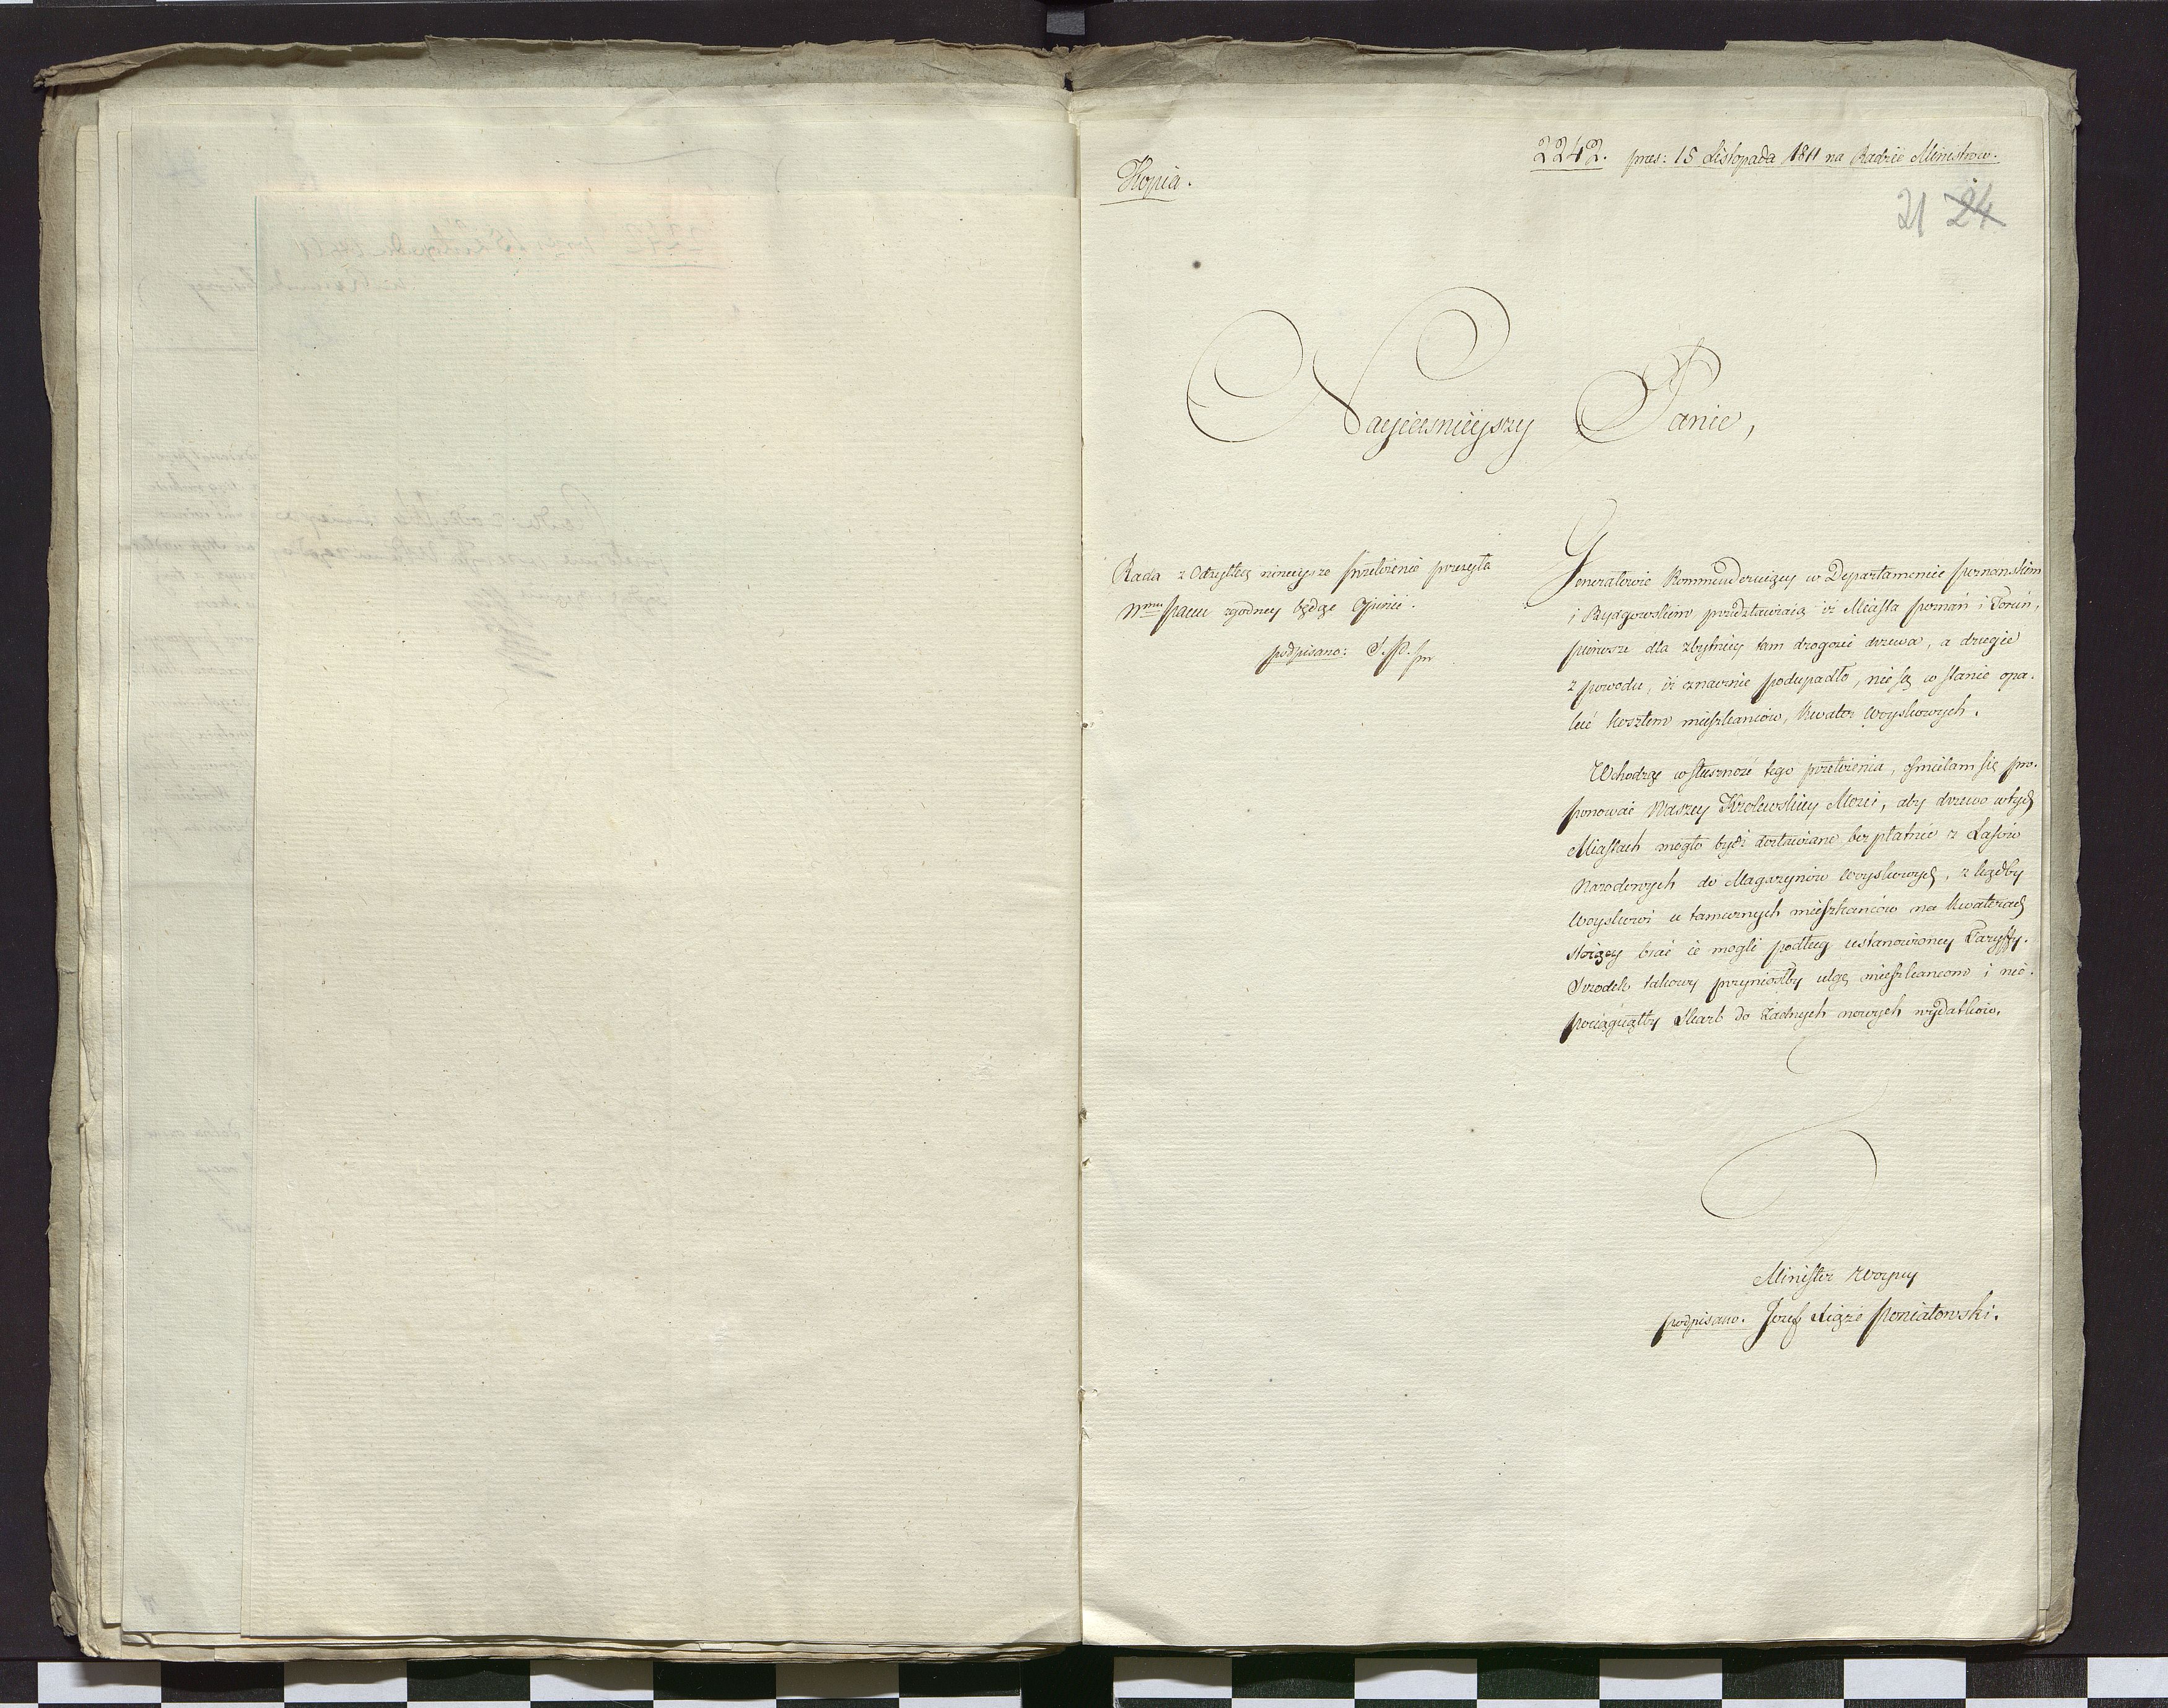 Kopia.
2242. pres: 15 Listopada 1811 na Radzie Ministrów.
21 24
Nayiaśnieyszy Panie,
Rada z Odezytką ninieysze przełożenie przesyła
Nmu Panu zgodney będąc Opinii.
podpisano: S. P.
Generałowie Kommenderuiący w Departamencie poznanskim
i Bydgowskim przedstawiaią iż Miasta poznań i Toruń,
pierwsze dla zbytniey tam drogości drzewa, a drugie
z powodu, iż znacznie podupadło, nie są w stanie opa-
lać kosztem mieszkanców, Kwater woyskowych.
Wchodząc w słuszność tego przełożenia, ośmielam się pro-
ponować Waszey Królewskiey Mości, aby drzewo w tych
Miastach mogło bydź dostawiane bezpłatnie z Lasów
Narodowych do Magazynów woyskowych, z kądby
Woyskowi u tamecznych mieszkanców na Kwaterach
stoiący brać ie mogli podług ustanowioney Taryffy.
Srodek takowy przyniosłby ulgę mieszkancom i nie-
pociągnąłby Skarb do żadnych nowych wydatków.
Minister Woyny
podpisano. Jozef Xiąże Poniatowski.